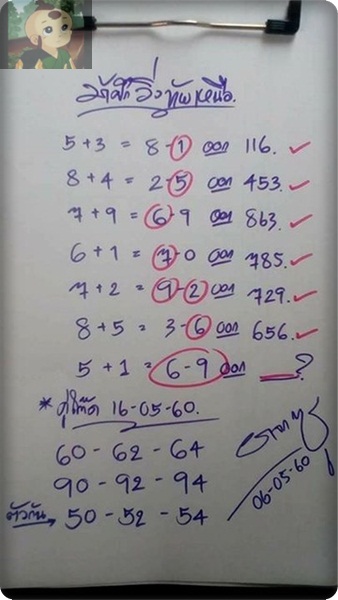 ม้าศึกวิ่งทัพเหนือ.
5+3 = 8-1 ออก 116. ✓
8+4 = 2-5 ออก 453. ✓
7+9 = 6-9 ออก 863. ✓
6+1 = 7-0 ออก 785. ✓
7+2 = 9-2 ออก 729. ✓
8+5 = 3-6 ออก 656. ✓
5+1 = 6-9 ออก ___?
* คู่โต๊ด 16-05-60.
60-62-64
90-92-94
ตัวกัน → 50-52-54
06-05-60